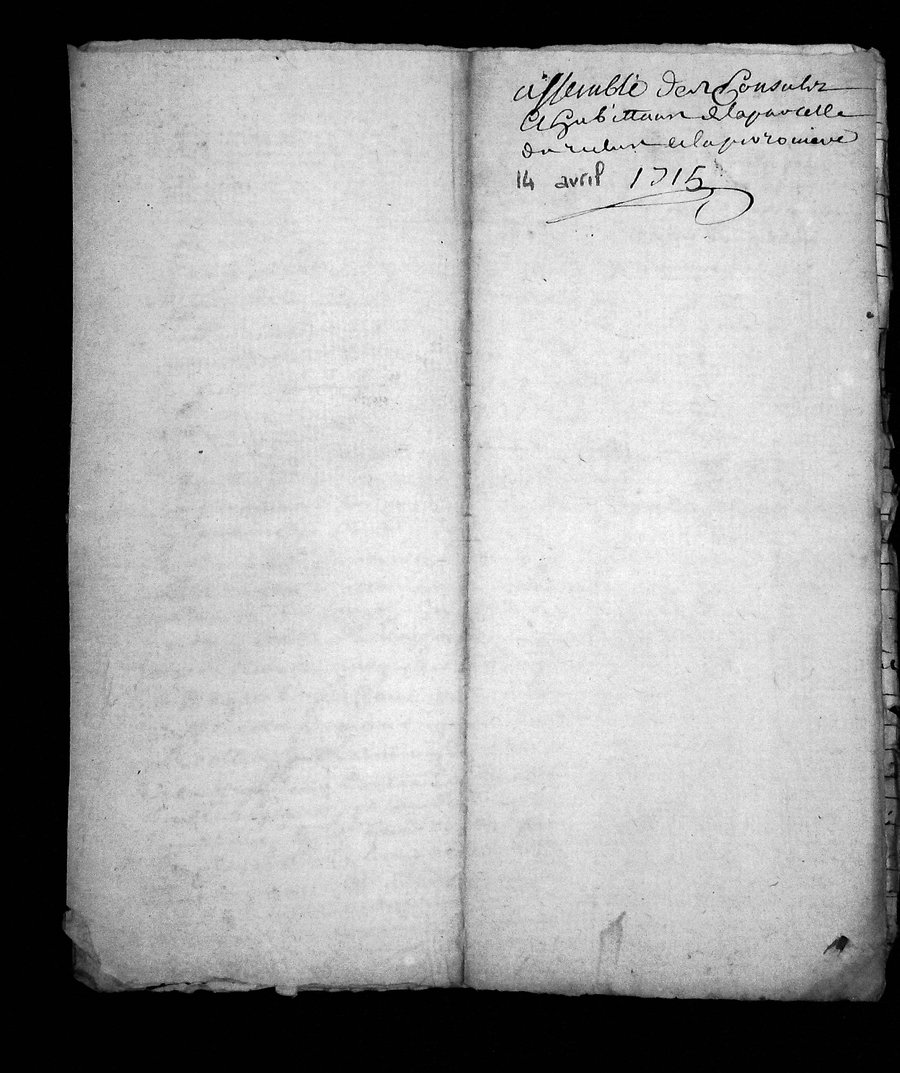 assemblé des Consuls
et habittans de la parcelle
de la
14 avril 1715